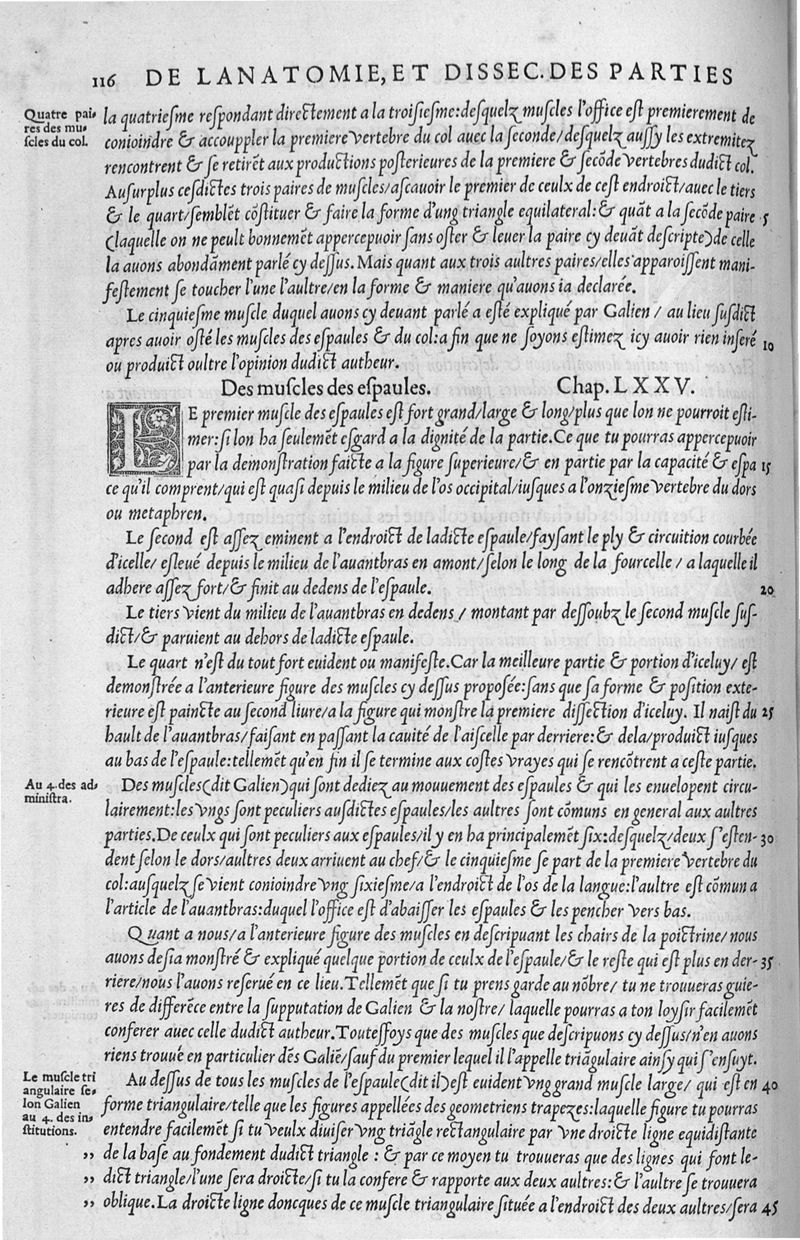 116 DE LANATOMIE, ET DISSEC. DES PARTIES
Quatre pai-
res des mu-
ſcles du col.
la quatrieſme reſpondant directement a la troiſieſme:deſquelz muſcles l'office eſt premierement de
conioindre & accouppler la premiere vertebre du col auec la ſeconde/deſquelz auſſy les extremitez
rencontrent & ſe retirēt aux productions poſterieures de la premiere & ſecōde vertebres dudict col.
Auſurplus ceſdictes trois paires de muſcles/aſcauoir le premier de ceulx de ceſt endroict/auec le tiers
& le quart/ſemblēt cōſtituer & faire la forme d'ung triangle equilateral:& quāt a la ſecōde paire 5
(laquelle on ne peult bonnemēt appercepuoir ſans oſter & leuer la paire cy deuāt deſcripte)de celle
la auons abondāment parlé cy deſſus. Mais quant aux trois aultres paires/elles apparoiſſent mani-
feſtement ſe toucher l'une l'aultre/en la forme & maniere qu'auons ia declarée.
Le cinquieſme muſcle duquel auons cy deuant parlé a eſté expliqué par Galien / au lieu ſuſdict
apres auoir oſté les muſcles des eſpaules & du col:a fin que ne ſoyons eſtimez icy auoir rien inſeré 10
ou produict oultre l'opinion dudict autheur.
Des muſcles des eſpaules. Chap. LXXV.
LE premier muſcle des eſpaules eſt fort grand/large & long/plus que lon ne pourroit eſti-
mer:ſi lon ha ſeulemēt eſgard a la dignité de la partie.Ce que tu pourras appercepuoir
par la demonſtration faicte a la figure ſuperieure/& en partie par la capacité & eſpa 15
ce qu'il comprent/qui eſt quaſi depuis le milieu de l'os occipital/iuſques a l'onzieſme vertebre du dors
ou metaphren.
Le ſecond eſt aſſez eminent a l'endroict de ladicte eſpaule/fayſant le ply & circuition courbée
d'icelle/ eſleué depuis le milieu de l'auantbras en amont/ſelon le long de la fourcelle / a laquelle il
adhere aſſez fort/& finit au dedens de l'eſpaule. 20
Le tiers vient du milieu de l'auantbras en dedens / montant par deſſoubz le ſecond muſcle ſuſ-
dict/& paruient au dehors de ladicte eſpaule.
Le quart n'eſt du tout fort euident ou manifeſte.Car la meilleure partie & portion d'iceluy/ eſt
demonſtrée a l'anterieure figure des muſcles cy deſſus propoſée:ſans que ſa forme & poſition exte-
rieure eſt paincte au ſecond liure/a la figure qui monſtre la premiere diſſection d'iceluy. Il naiſt du 25
hault de l'auantbras/faiſant en paſſant la cauité de l'aiſcelle par derriere:& dela/produict iuſques
au bas de l'eſpaule:tellemēt qu'en fin il ſe termine aux coſtes vrayes qui ſe rencōtrent a ceſte partie.
Au 4.des ad-
miniſtra.
Des muſcles(dit Galien)qui ſont dediez au mouuement des eſpaules & qui les enuelopent circu-
lairement:les vngs ſont peculiers auſdictes eſpaules/les aultres ſont cōmuns en general aux aultres
parties.De ceulx qui ſont peculiers aux eſpaules/il y en ha principalemēt ſix:deſquelz/deux s'eſten- 30
dent ſelon le dors/aultres deux arriuent au chef/& le cinquieſme ſe part de la premiere vertebre du
col:auſquelz ſe vient conioindre vng ſixieſme/a l'endroict de l'os de la langue:l'aultre eſt cōmun a
l'article de l'auantbras:duquel l'office eſt d'abaiſſer les eſpaules & les pencher vers bas.
Quant a nous/a l'anterieure figure des muſcles en deſcripuant les chairs de la poictrine/nous
auons deſia monſtré & expliqué quelque portion de ceulx de l'eſpaule/& le reſte qui eſt plus en der- 35
riere/nous l'auons reſerué en ce lieu.Tellemēt que ſi tu prens garde au nōbre/ tu ne trouueras guie-
res de differēce entre la ſupputation de Galien & la noſtre/ laquelle pourras a ton loyſir facilemēt
conferer auec celle dudict autheur.Touteſfoys que des muſcles que deſcripuons cy deſſus/n'en auons
riens trouué en particulier dēs Galiē/ſauf du premier lequel il l'appelle triāgulaire ainſy qui s'enſuyt.
Le muſcle tri
angulaire ſe-
lon Galien
au 4. des in-
ſtitutions.
Au deſſus de tous les muſcles de l'eſpaule(dit il)eſt euident vng grand muſcle large/ qui eſt en 40
forme triangulaire/telle que les figures appellées des geometriens trapezes:laquelle figure tu pourras
entendre facilemēt ſi tu veulx diuiſer vng triāgle rectangulaire par vne droicte ligne equidiſtante
„ de la baſe au fondement dudict triangle : & par ce moyen tu trouueras que des lignes qui font le-
„ dict triangle/l'une ſera droicte/ſi tu la confere & rapporte aux deux aultres:& l'aultre ſe trouuera
„ oblique.La droicte ligne doncques de ce muſcle triangulaire ſituée a l'endroict des deux aultres/ſera 45